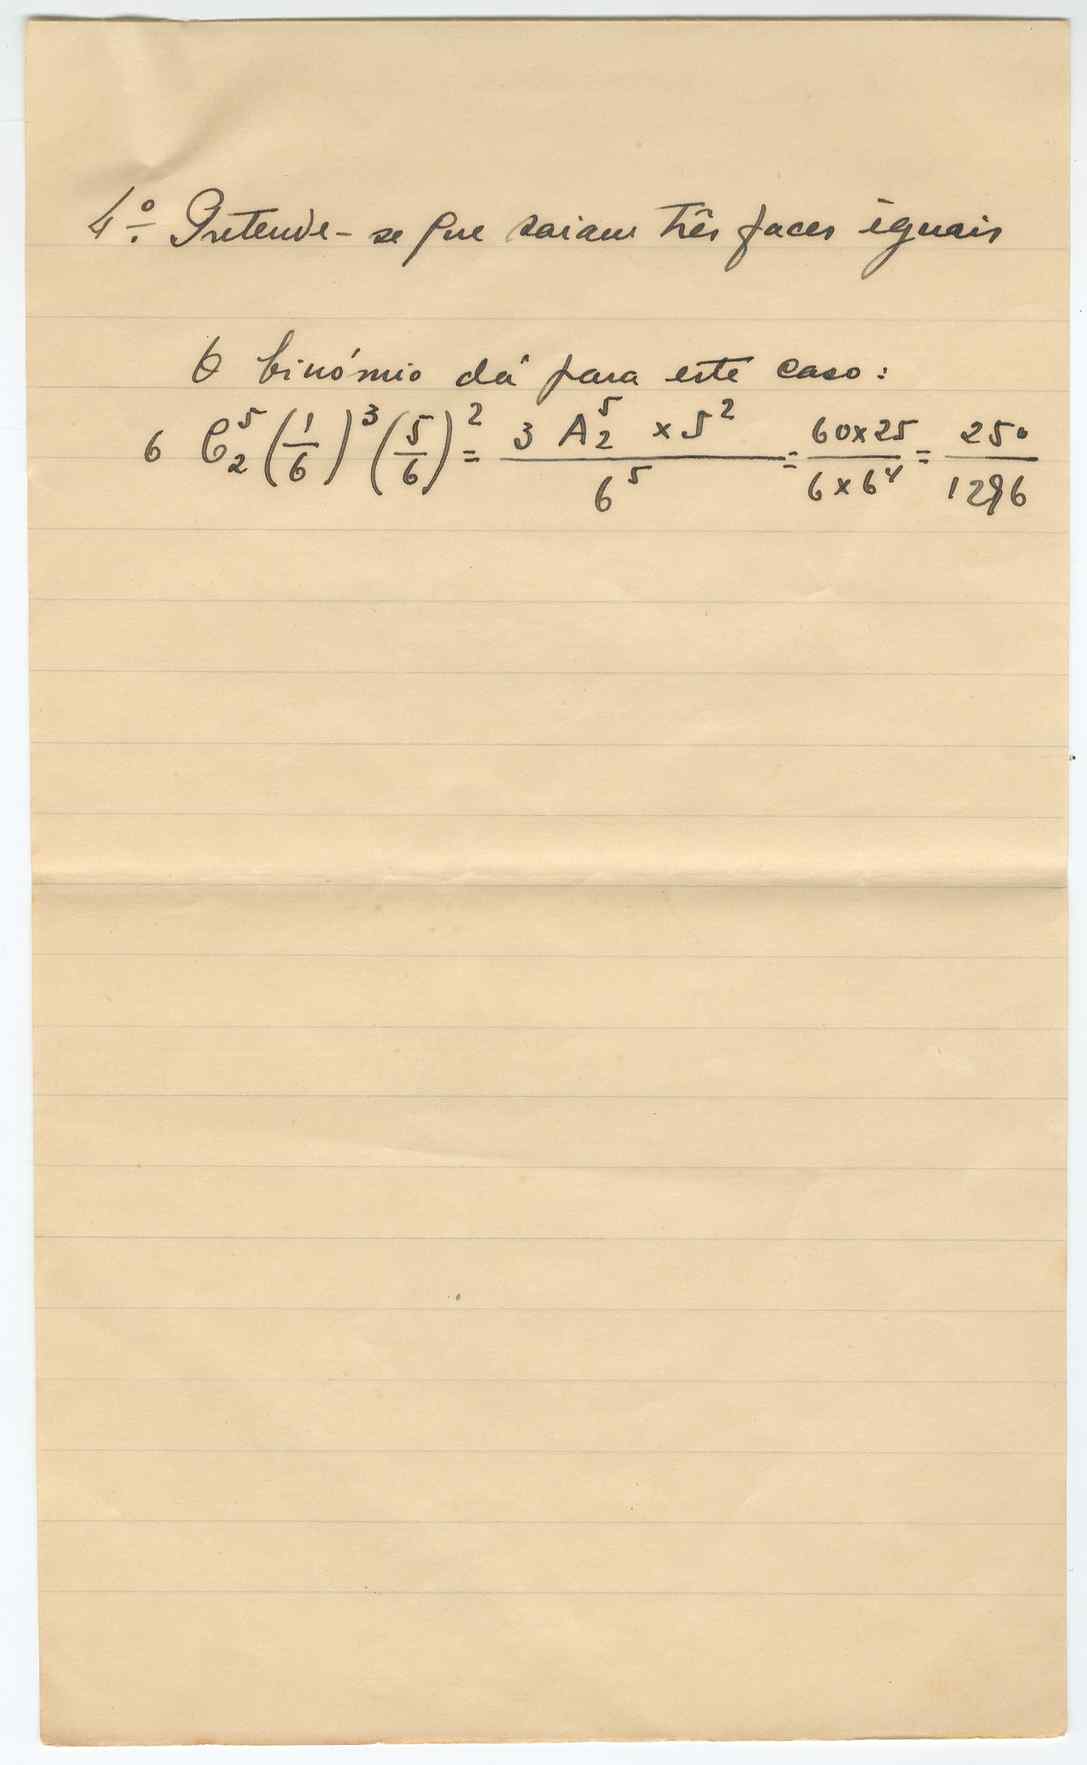 4º. Pretende-se que saiam três faces iguais
O binómio dá para este caso:
6 C₂⁵ (1/6)³ (5/6)² = 3 A₂⁵ × 5² / 6⁵ = 60×25 / 6×6⁴ = 250 / 1296